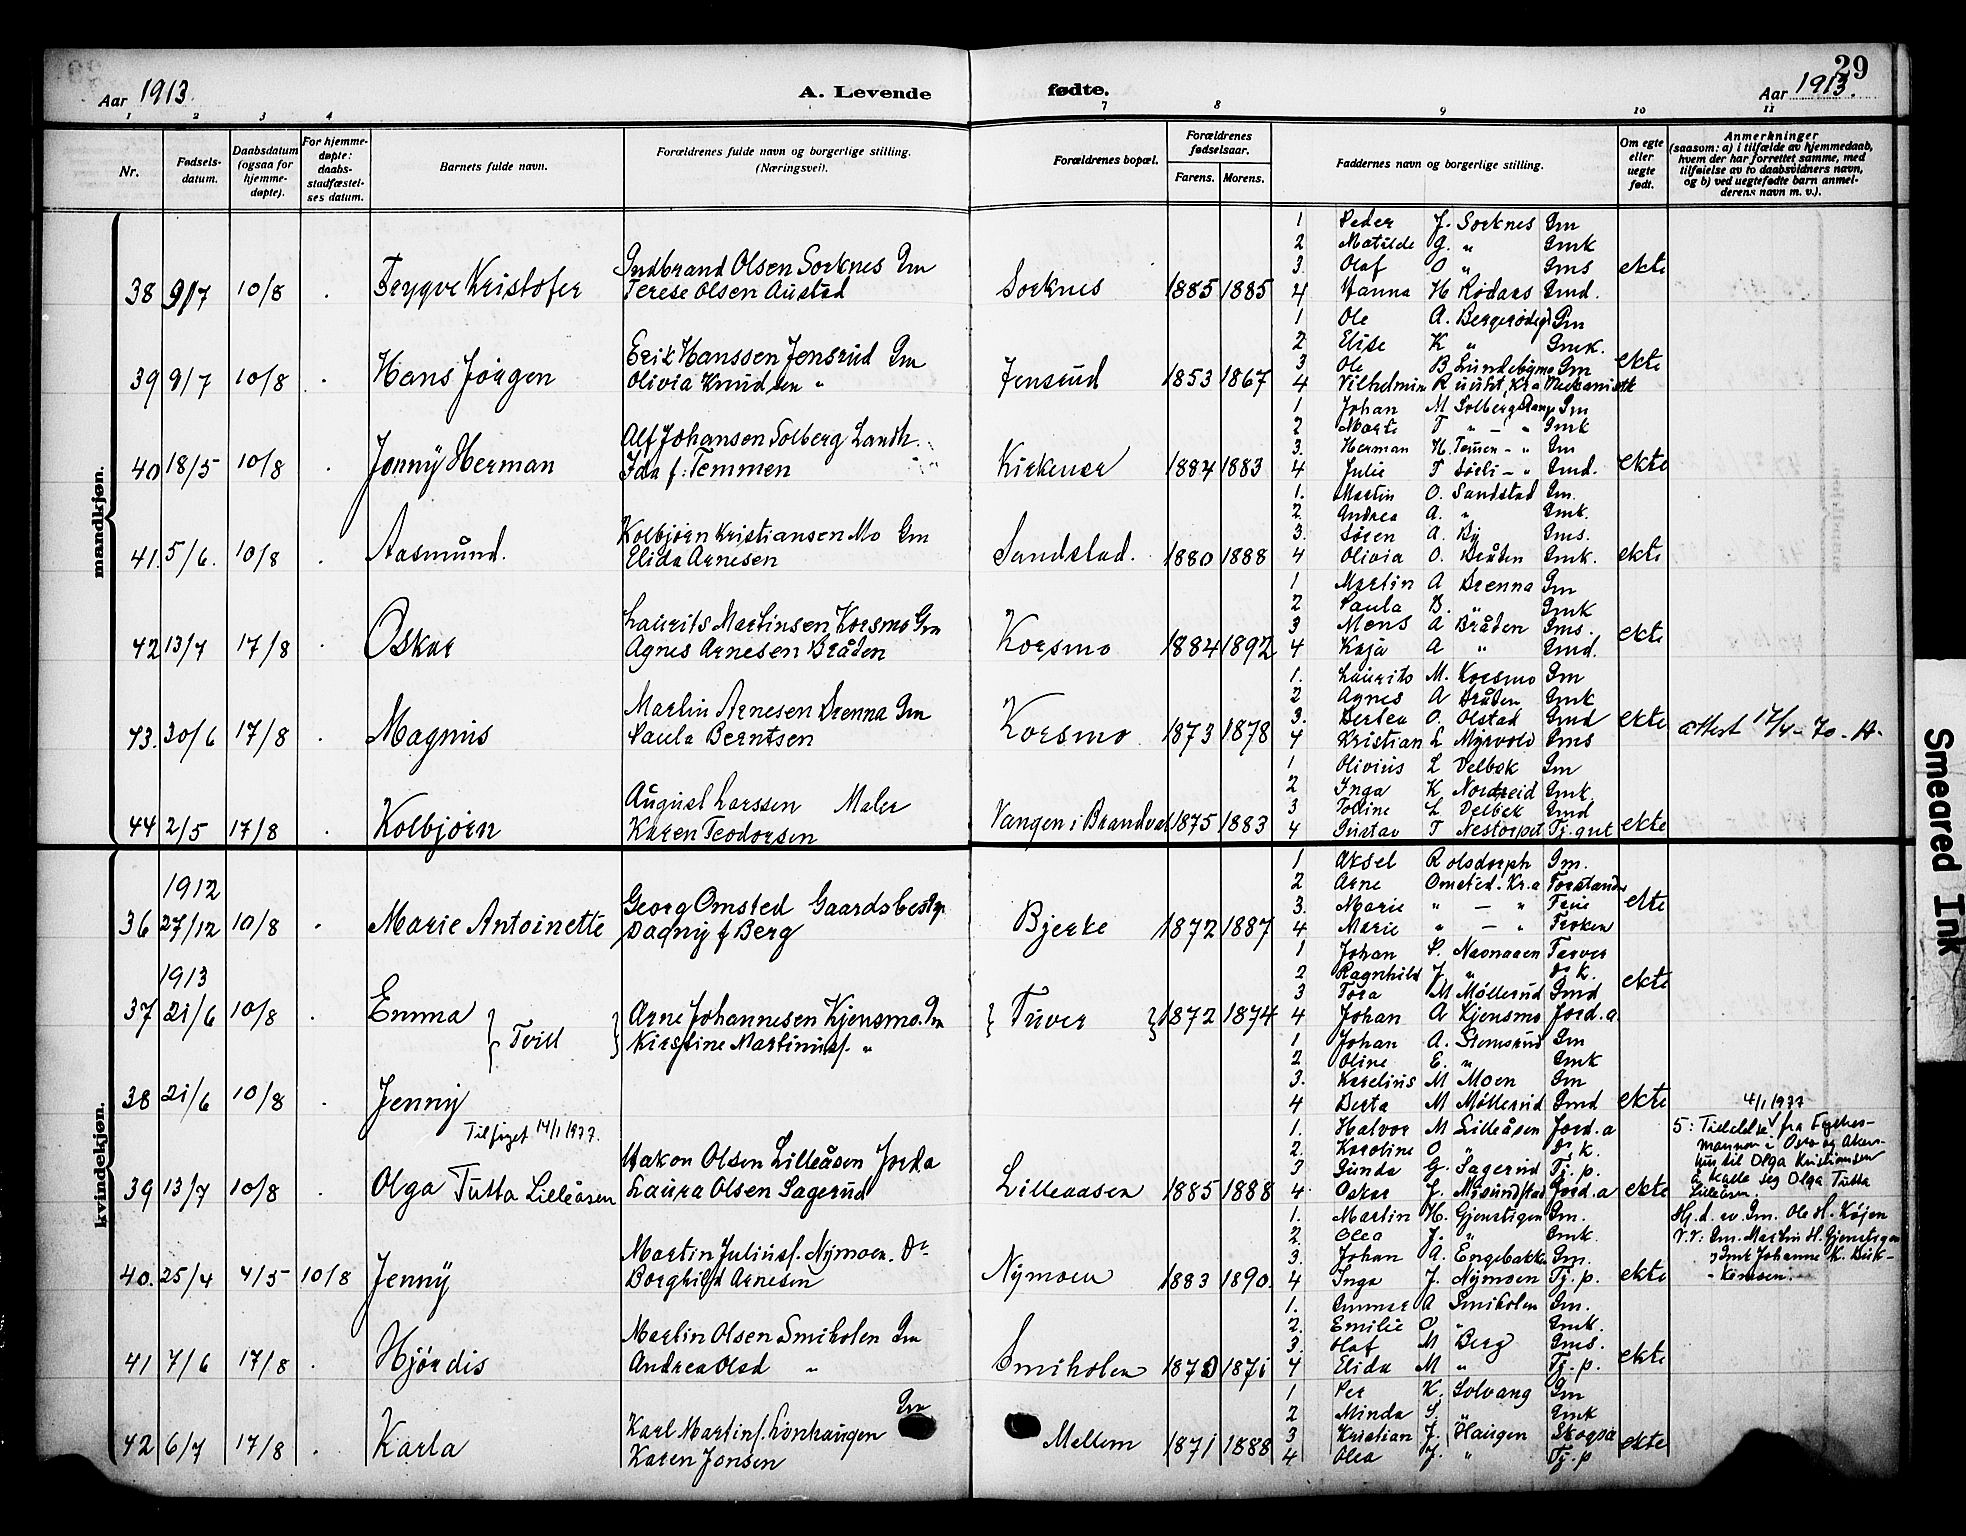 29
Aar 1913.
A. Levende fødte.
Aar 1913.
1 2 3 4 7 8 9 10 11
Nr.
Fødsels-
datum.
Daabsdatum
(ogsaa for
hjemme-
døpte).
For hjemme-
døpte:
daabs-
stadfæstel-
ses datum.
Barnets fulde navn.
Forældrenes fulde navn og borgerlige stilling.
(Næringsvei).
Forældrenes bopæl.
Forældrenes
fødselsaar.
Farens. Morens.
Faddernes navn og borgerlige stilling.
Om egte
eller
uegte
født.
Anmerkninger
(saasom: a) i tilfælde av hjemmedaab,
hvem der har forrettet samme, med
tilføielse av to daabsvidners navn,
og b) ved uegtefødte barn anmel-
derens navn m. v.).
mandkjøn.
1 Peder J. Sorknes Gm
2 Matilde G. " Gmk
Gudbrand Olsen Sorknes Gm
3. Olaf O " Gms ekte
38 9/7 10/8 . Trygve Kristofer Terese Olsen Austad Sorknes 1885 1885 4 Hanna H Rødaas Gmd.
1 Ole A. Bergerødegd Gm
2 Elise K " Gmk.
Erik Hanssen Jensrud Gm
3 Ole B Lundebymo Gm ekte
39 9/7 10/8 . Hans Jørgen Olivia Knudsen " Jensrud 1853 1867 4 Vilhelmin Ruust, Kra
1 Johan M Solberg Stange Gm
2 Marte T " - " Gmk
Alf Johansen Solberg Landh.
3. Herman H. Temmen - " Gm
40 18/5 10/8 . Jonny Herman Ida f. Temmen Kirkenær 1884 1883 4 Julie T Sørli - " Gmd. ekte
1. Martin O. Sandstad Gm.
2. Andrea A. " Gmk.
Kolbjørn Kristiansen Mo Gm
3. Søren A. By Gms.
41. 5/6. 10/8 . Aasmund. Elida Arnesen Sandstad. 1880 1888 4 Olivia O. Bråten Gmk. ekte
1 Martin A Brenna Gm
2 Paula B. " Gmk
Laurits Martinsen Korsmo Gm
3 Mons A Bråten Gms. ekte
42 13/7 17/8 . Oskar Agnes Arnesen Bråten Korsmo 1884 1892 4 Kaja A " Gmd.
1. Laurits M. Korsmo Gm
2 Agnes A Bråten Gmk
Martin Arnesen Brenna Gm
3. Bertea O. Olstad Gmd ekte
43. 30/6 17/8 . Magnus Paula Berntsen Korsmo 1873 1878 4 Kristian L Myrvold Gms attest 17/4 - 70 - A-
1 Olivius L Velbek Gm
2 Inga K Nordreid Gmk.
August Larssen Maler
3 Polline L Velbek Gmd
44 2/5 17/8 . Kolbjørn Karen Teodorsen Vangen i Brandval 1875 1883 4 Gustav T Nestorpet Tj. gut ekte
kvindekjøn.
1. Aksel Rolsdorph Gm.
1912
2 Arne Omsted. Kr.a Forstander
Georg Omsted Gaardsbestyr
3. Marie " - " Frue ekte
36 27/12 10/8 . Marie Antoinette Dagny f Berg Bjerke 1872 1887 4 Marie " - " Frøken
1 Johan P. Farver
1913
2 Ragnhild J. " dsk.
3 Tora M Møllerud Gmd ekte
37 21/6 10/8 . Emma Arne Johannesen Kjensmo. Gm Tuver 1872 1874 4 Johan A Kjensmo Jord.a
Tvill Kirstine Martinusf. "
1 Johan A. Stemsrud Gm
2. Oline E. " Gmk
3. Karelius M Moen Gm
38 21/6 10/8 . Jenny 4 Berta M Møllerud Gmd ekte
Tilføyet 14/1 1977.
4/1 1977
1. Halvor M Lilleåsen Jord.a 5: Tillatelse fra Fylkes-
2. Karoline O " ds k. mannen i Oslo og Akers-
Hakon Olsen Lilleåsen Jorda
3 Gunda G. Sagerud Tj. p. hus til Olga Kristiansen
39 13/7 10/8 . Olga Tutta Lilleåsen Laura Olsen Sagerud Lilleaasen 1885 1888 4. Oskar J. Misundstad Jord.a ekte å kalle seg Olga Tutta
Lilleåsen.
1. Martin H. Gjenstigen Gm. Hj. d. av Gm. Ole H. Køjen
2. Olea J. " Gmk. V.v: Gm. Martin H. Gjenstigen
Martin Juliusf. Nymoen. Dr
3. Johan A. Engebakken Gm. Gmk Johanne K. Birk-
40. 25/4 4/5 10/8 Jenny Borghild Arnesen Nymoen 1883 1890. 4 Inga J. Nymoen Tj. p. ekte
1. Gunnar A Smiholen Gm.
2. Emilie O " Gmk.
Martin Olsen Smiholen Gm
3. Olaf M Berg Gms.
41 7/6 17/8 . Hjørdis Andrea Olsd " Smiholen 1870 1871 4 Elida M " Tj. p. ekte
1 Per K. Solvang Gm
2 Minda S. " Gmk
Karl Martinsf. Lønhaugen Gm
3 Kristian J. Haugen Skogsa
42 6/7 17/8 . Karla Karen Jonsen Mellem 1871 1888 4 Olea J. " Tj. p ekte
Smeared Ink